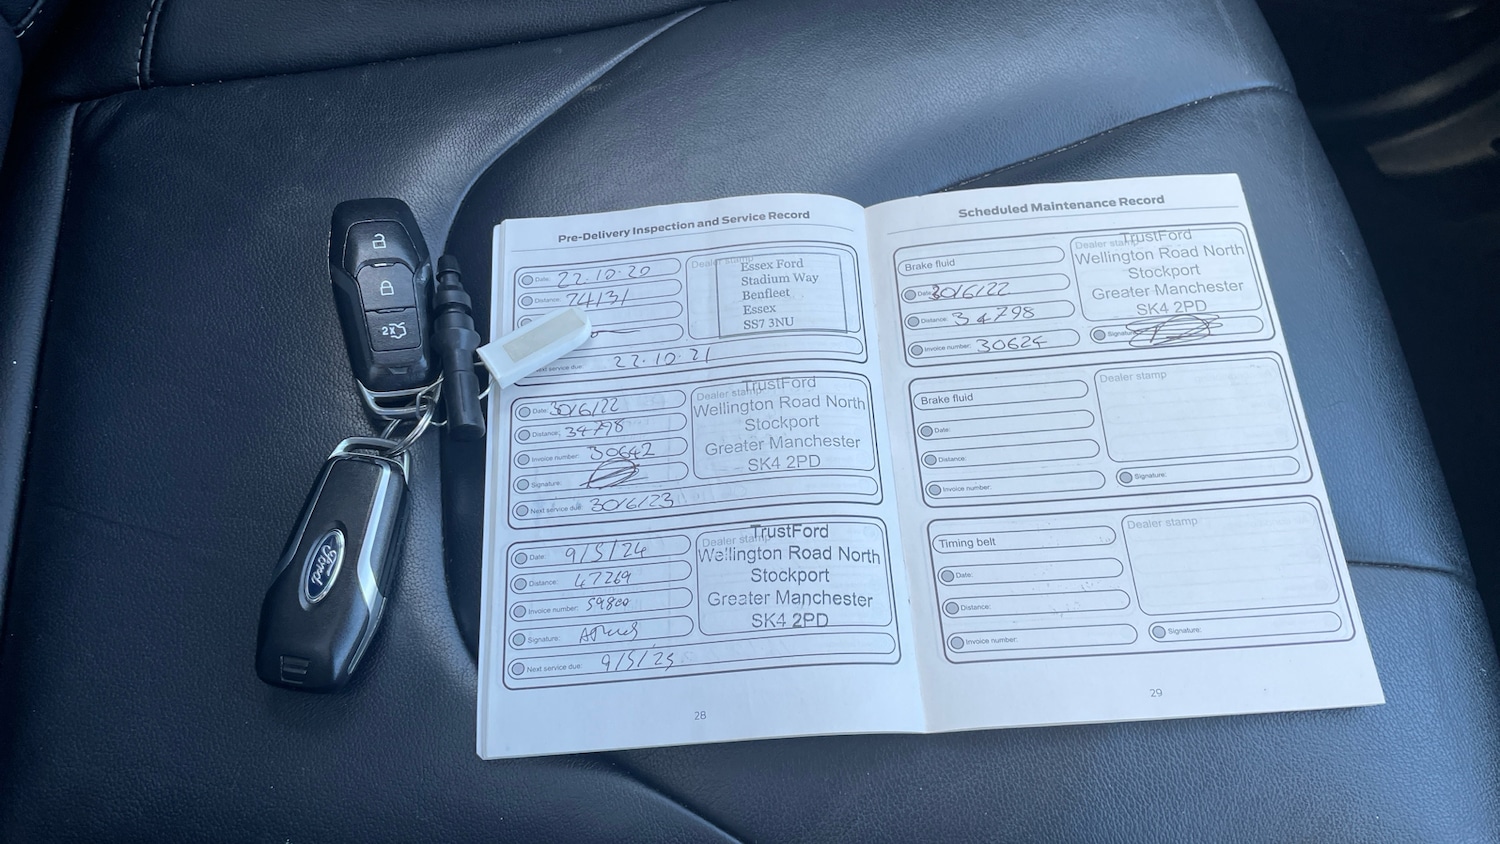 2X
Ford
Pre-Delivery Inspection and Service Record
Date: 22.10.20
Distance: 74131
Next service due: 22.10.21
Dealer stamp
Essex Ford
Stadium Way
Benfleet
Essex
SS7 3NU
Date: 30/6/22
Distance: 34798
Invoice number: 30642
Signature:
Next service due: 30/6/23
Dealer stamp
TrustFord
Wellington Road North
Stockport
Greater Manchester
SK4 2PD
Date: 9/5/24
Distance: 47269
Invoice number: 59800
Signature:
Next service due: 9/5/25
Dealer stamp
TrustFord
Wellington Road North
Stockport
Greater Manchester
SK4 2PD
28
Scheduled Maintenance Record
Brake fluid
Date: 30/6/22
Distance: 34798
Invoice number: 30624
Dealer stamp
TrustFord
Wellington Road North
Stockport
Greater Manchester
SK4 2PD
Signature:
Brake fluid
Date:
Distance:
Invoice number:
Dealer stamp
Signature:
Timing belt
Date:
Distance:
Invoice number:
Dealer stamp
Signature:
29